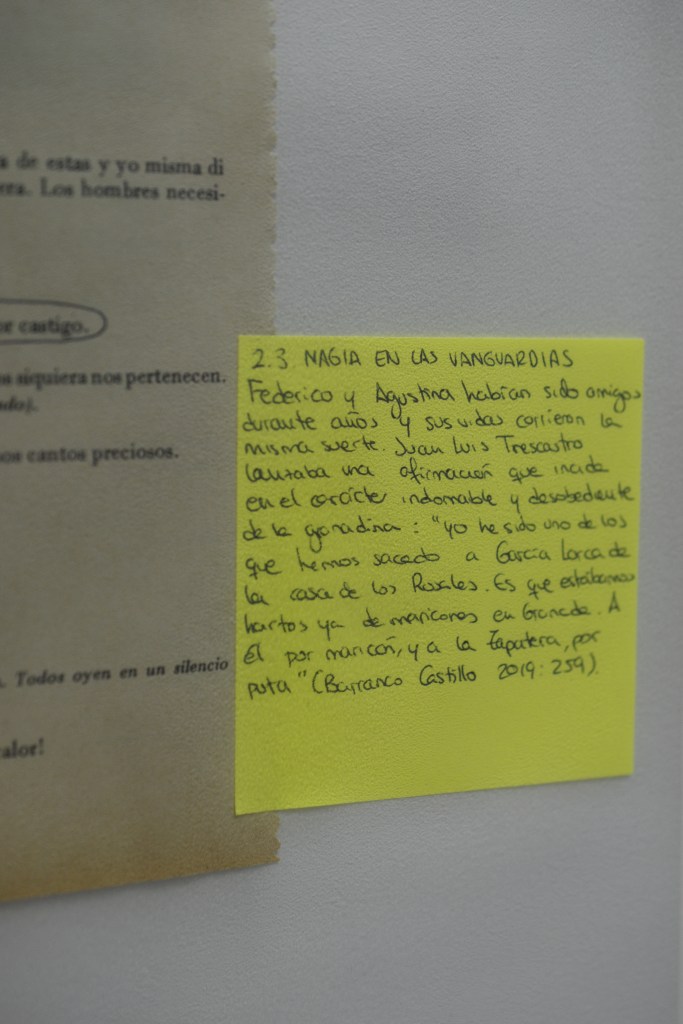 a de estas y yo misma di
era. Los hombres necesi-
castigo.
siquiera nos pertenecen.
os cantos preciosos.
. Todos oyen en un silencio
alor!
2.3 MAGIA EN LAS VANGUARDIAS
Federico y Agustina habían sido amigos
durante años y sus vidas corrieron la
misma suerte. Juan Luis Trescastro
lanzaba una afirmación que incide
en el carácter indomable y desobediente
de la granadina: "yo he sido uno de los
que hemos sacado a García Lorca de
la casa de los Rosales. Es que estábamos
hartos ya de maricones en Granada. A
él por maricón, y a la Zapatera, por
puta" (Barranco Castillo 2019: 259).